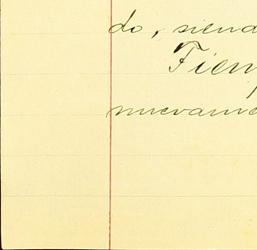 do, siend
Tien
nuevame